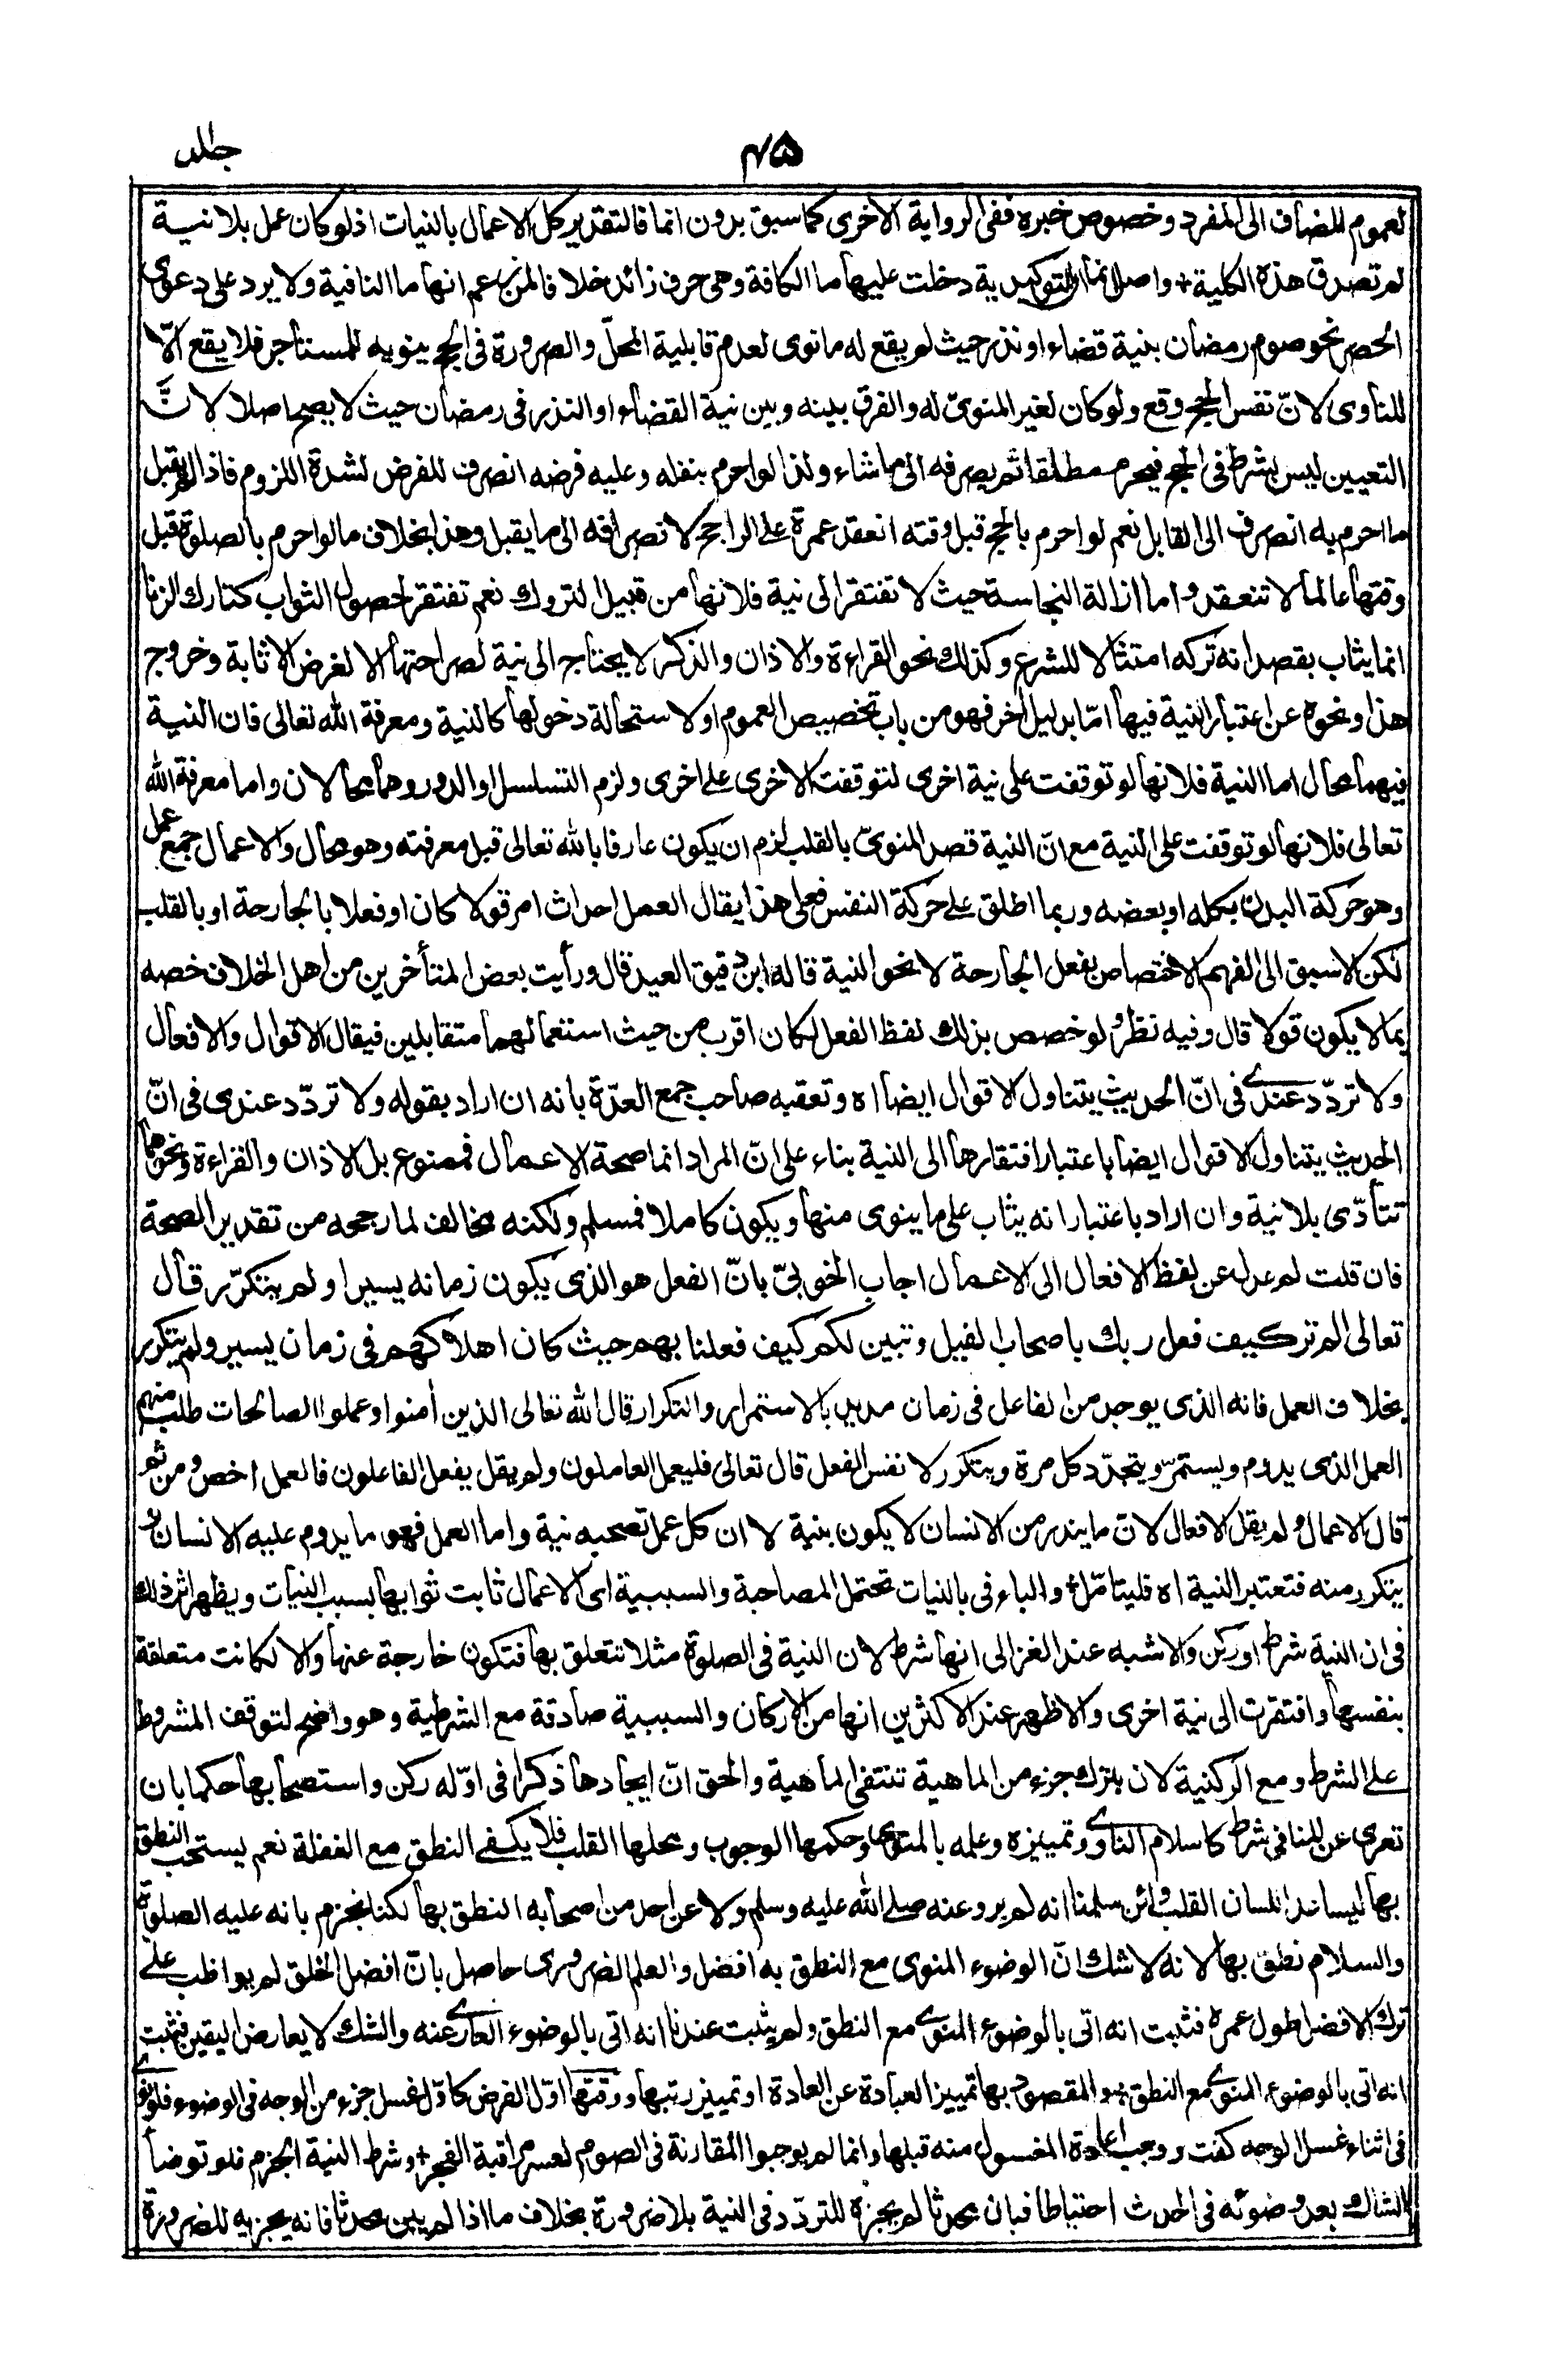 جلد
۴۵
لعموم للضاف الى المفرد وخصوص خبره ففى الرواية الاخرى كما سبق بدون انما فالتقدير كل الاعمال بالنيات اذ لو كان عمل بلا نية
لم تصدق هذه الكلية+ واصل انما ان التوكيدية دخلت عليها ما الكافة وهى حرف زائد خلافا لمن زعم انها ما النافية ولا يرد على دعوى
الحصر نحو صوم رمضان بنية قضاء او نذر حيث لم يقع له ما نوى لعدم قابلية المحلّ والصرورة فى الحج ينويه للمستأجر فلا يقع الّا
للناوى لانّ نفس الحج وقع ولو كان لغير المنوىّ له والفرق بينه وبين نية القضاء او النذر فى رمضان حيث لا يصح اصلا لانَّ
التعيين ليس بشرط فى الحج فيحرم مطلقا ثم يصرفه الى ما شاء ولذا لو احرم بنفله وعليه فرضه انصرف للفرض لشدة اللزوم فاذا لم يقبل
ما احرم به انصرف الى القابل نعم لو احرم بالحج قبل وقته انعقد عمرة على الراجح لانصرافه الى ما يقبل وهذا بخلاف ما لو احرم بالصلوة قبل
وقتها عالما لا تنعقد و اما ازالة النجاسة حيث لا تفتقر الى نية فلانها من قبيل التروك نعم تفتقر لحصول الثواب كتارك الزنا
انما يثاب بقصد انه تركه امتثالا للشرع وكذلك نحو القراءة والاذان والذكر لا يحتاج الى نية لصراحتها الا لغرض الاثابة وخروج
هذا ونحوه عن اعتبار النية فيها امّا بدليل اٰخر فهو من باب تخصيص العموم او لاستحالة دخولها كالنية ومعرفة الله تعالى فان النية
فيهما محال اما النية فلانها لو توقفت على نية اخرى لتوقفت الاخرى على اخرى ولزم التسلسل او الدور وهما محالان واما معرفة الله
تعالى فلانها لو توقفت على النية مع انّ النية قصد المنوىّ بالقلب لزم ان يكون عارفا بالله تعالى قبل معرفته وهو محال والاعمال جمع عمل
وهو حركة البدن بكله او بعضه وربما اطلق على حركة النفس فعلى هذا يقال العمل احداث امر قولا كان او فعلا بالجارحة او بالقلب
لكن الاسبق الى الفهم الاختصاص بفعل الجارحة لا نحو النية قاله ابن دقيق العيد قال ورأيت بعض المتأخرين من اهل الخلاف خصه
بما لا يكون قولا قال وفيه نظر ولو خصص بذلك لفظ الفعل لكان اقرب من حيث استعمالهما متقابلين فيقال الاقوال والافعال
ولا تردّد عندے فى انّ الحديث يتناول الاقوال ايضا اه وتعقبه صاحب جمع العدّة بانه ان اراد بقوله ولا تردّد عندى فى انّ
الحديث يتناول الاقوال ايضا باعتبار افتقارها الى النية بناء على انّ المراد انما صحة الاعمال فممنوع بل الاذان والقراءة ونحوهما
تتأدّى بلا نية وان اراد باعتبار انه يثاب على ما ينوى منها ويكون كاملا فمسلم ولكنه مخالف لما رجحه من تقدير الصحة
فان قلت لم عدل عن لفظ الافعال الى الاعمال اجاب الخوبىّ بانّ الفعل هو الذى يكون زمانه يسيرا ولم يتكرّر قال
تعالى الم تر كيف فعل ربك باصحاب الفيل وتبين لكم كيف فعلنا بهم حيث كان اهلاكهم فى زمان يسير ولم يتكرر
بخلاف العمل فانه الذى يوجد من الفاعل فى زمان مديد بالاستمرار والتكرار قال الله تعالى الذين اٰمنوا وعملوا الصالحات طلب منهم
العمل الذى يدوم ويستمر ويتجدّد كل مرة ويتكرر لا نفس الفعل قال تعالى فليعمل العاملون ولم يقل يفعل الفاعلون فالعمل اخص ومن ثم
قال الاعمال ولم يقل الافعال لان ما يندر من الانسان لا يكون بنية لا ان كل عمل تصحبه نية واما العمل فهو ما يدوم عليه الانسان و
يتكرر منه فتعتبر النية اه فليتامّل+ والباء فى بالنيات تحتمل المصاحبة والسببية اى الاعمال ثابت ثوابها بسبب النيات ويظهر اثر ذلك
فى ان النية شرط او ركن والاشبه عند الغزالى انها شرط لان النية فى الصلوة مثلا تتعلق بها فتكون خارجة عنها والا لكانت متعلقة
بنفسها وافتقرت الى نية اخرى والاظهر عند الاكثرين انها من الاركان والسببية صادقة مع الشرطية وهو واضح لتوقف المشروط
على الشرط ومع الركنية لان بترك جزء من الماهية تنتفى الماهية والحق انّ ايجادها ذكرا فى اوّله ركن واستصحابها حكما بان
تعرى عن المنافى شرط كاسلام الناوى وتمييزه وعلمه بالمنوى وحكمها الوجوب ومحلها القلب فلا يكفے النطق مع الغفلة نعم يستحب النطق
بها ليساعد اللسان القلب ولئن سلمنا انه لم يرو عنه صلے الله عليه وسلم ولا عن احد من اصحابه النطق بها لكنا نجزم بانه عليه الصلوة
والسلام نطق بها لانه لا شك انّ الوضوء المنوى مع النطق به افضل والعلم الضرورى حاصل بانّ افضل الخلق لم يواظب علے
ترك الافضل طول عمره فثبت انه اتى بالوضوء المنوے مع النطق ولم يثبت عندنا انه اتى بالوضوء العارے عنه والشك لا يعارض اليقين فثبت
انه اتى بالوضوء المنوے مع النطق به والمقصود بها تمييز العبادة عن العادة او تمييز رتبها ووقتها اوّل الفرض كاوّل غسل جزء من الوجه فى الوضوء فلو نوى
فى اثناء غسل الوجه كفت ووجب اعادة المغسول منه قبلها وانما لم يوجبوا المقارنة فى الصوم لعسر مراقبة الفجر+ وشرط النية الجزم فلو توضأ
الشاك بعد وضوئه فى الحدث احتياطا فبان محدثا لم يجزه للتردّد فى النية بلا ضرورة بخلاف ما اذا لم يبن محدثا فانه يجزيه للضرورة